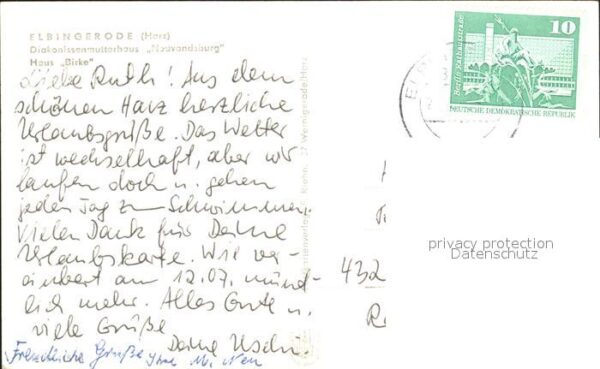 ELBINGERODE (Harz)
Diakonissenmutterhaus „Neuvandsburg"
Haus „Birke"
Liebe Ruth! Aus dem
schönen Harz herzliche
Urlaubsgrüße. Das Wetter
ist wechselhaft, aber wir
laufen doch u. gehen
jeden Tag zum Schwimmen.
Vielen Dank für Deine
Urlaubskarte. Wie ver-
einbart am 12.07. münd-
lich mehr. Alles Gute u.
viele Grüße
Deine Uschi.
Freundliche Grüße Ihre
Wernigerode/Harz
10
Berlin, Rathausstraße
DEUTSCHE DEMOKRATISCHE REPUBLIK
EL
432
privacy protection
Datenschutz